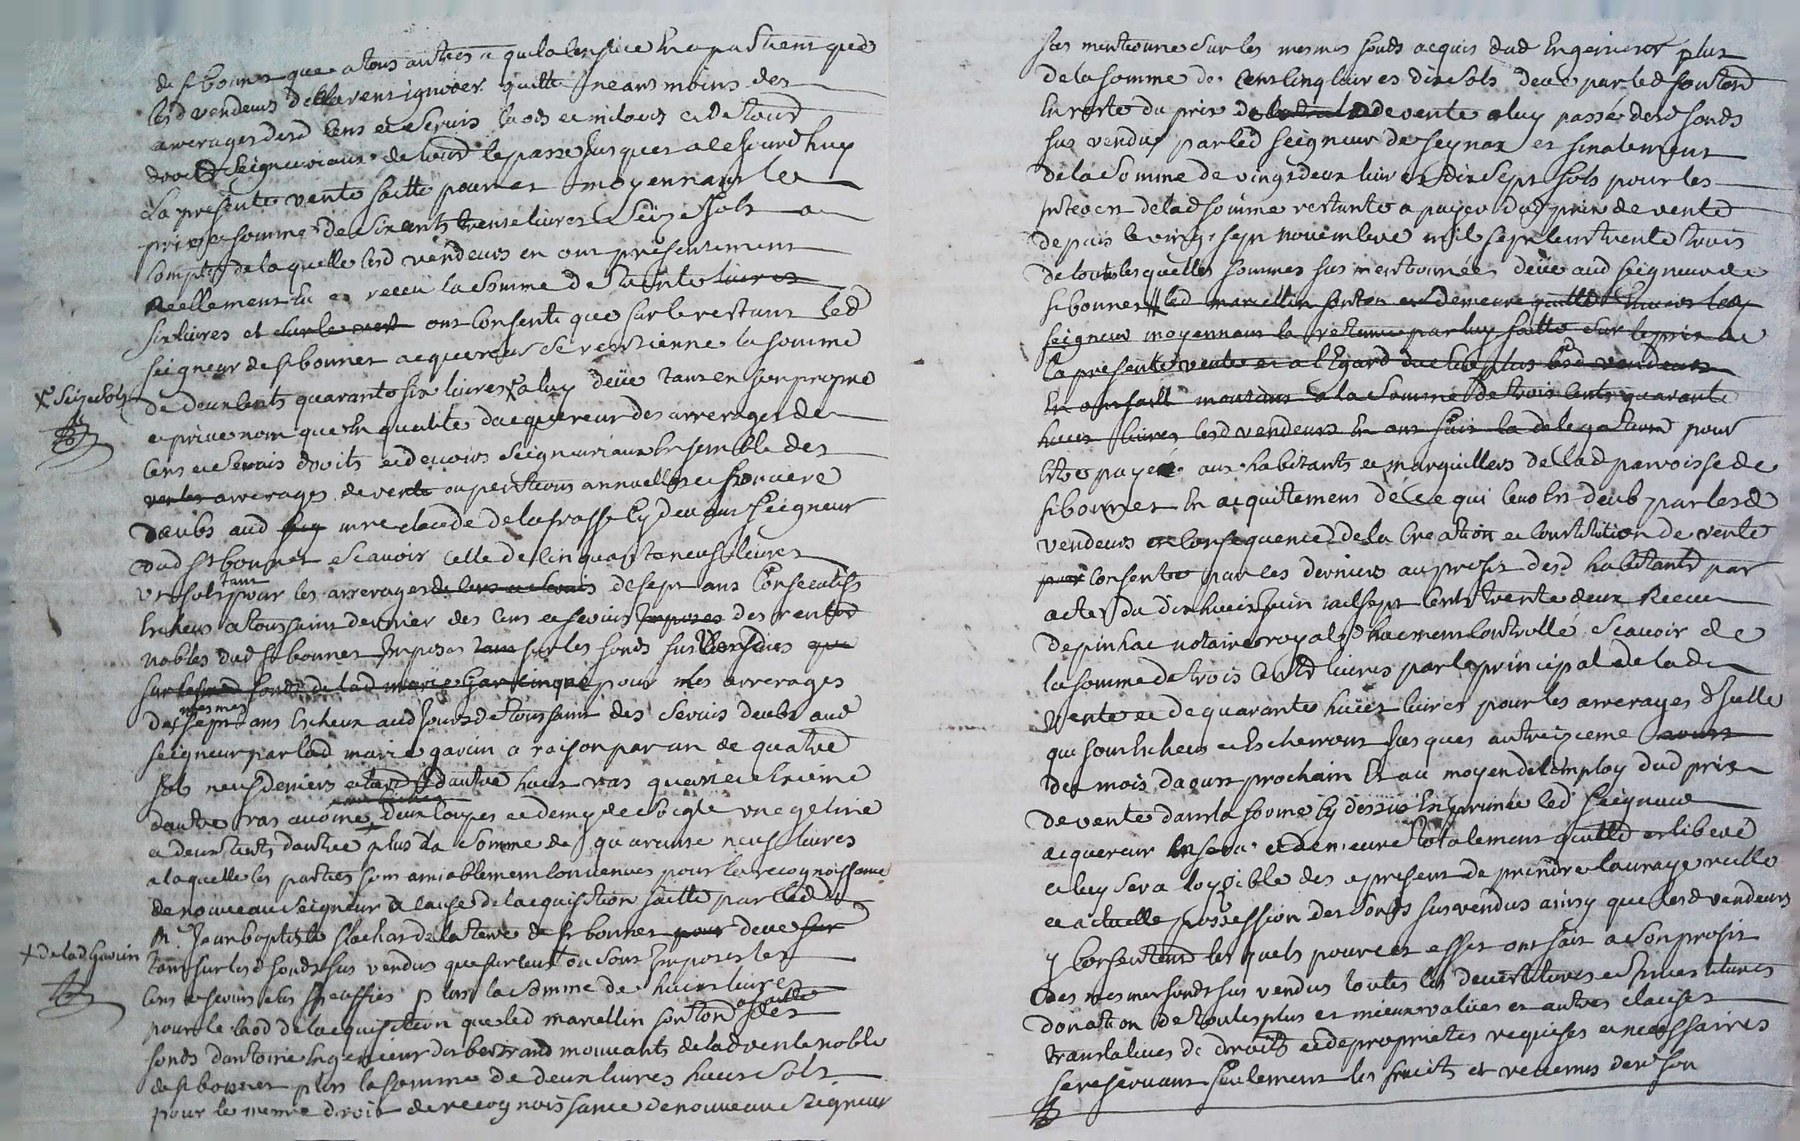 de st bonnet que a tous autres a qui la lensiue en apartient que
lesd vendeurs declarent ignorer quitte neant moins des
arrerages desd cens et servis laods et milaods et de tous
droits seigneuriaux de tout le passe jusques a ce jourdhuy
La presente vente faitte pour et moyennant le
prix et somme de six cents trense livres seize sols a
compte de laquelle lesd vendeurs en ont presentement
Reellement eu et receu la somme de trante livres
six livres et sur le rest ont consenti que sur le restant led
seigneur de st bonnet acquereur se restienne la somme
de deux cents quarante six livres x a luy deüe tant en son propre
x seize sols
et prive nom que en qualite d'acquereur des arrerages de
cens et servis droits et devoirs seigneuriaux ensemble des
arrerages de vente ou pentions annuelles et fonciere
deubs aud mre claude de la frasse cy devant seigneur
dud st bonnet scavoir celle de cinquante neuf livres
un sol tant pour les arrerages de cens et servis de sept ans consecutifs
Echeus a toussaint dernier des cens et servis imposes des rentes
nobles dud st bonnet Imposes tant sur les fonds sus vendus que
sur lesmes fonds de lad marie Gavin que pour mes arrerages
des mesmes sept ans Echeux aud jour de toussaint des servis deubs aud
seigneur par lad marie gavin a raison par an de quatre
sols neuf deniers dautre huit ras quarte et huitieme
dautre ras avoine deux coupes et demy de seigle une geline
et deux tiers dautre plus La somme de quarante neuf livres
a laquelle les parties sont amiablement convenues pour la recognoissance
de nouveau seigneur a cause de lacquisition faitte par led
Mr Jean baptiste flachat de la terre de st bonnet pour deue sur
x de lad Gavin
tant sur lesd fonds sus vendus que sur ceux ou sont imposes les
cens et servis plus la somme de huit livres
pour le laod de lacquisition que led marcellin fonton a faitte des
fonds dantoine Ingenieur dit bertrand mouvants de lad vente noble
de st bonnet plus la somme de deux livres huit sols
pour le meme droit de recognoissance de nouveau seigneur
sus mentionne sur les mesmes fonds acquis dud Ingenieur plus
de la somme de cent cinq livres dix sols deue par led fonton
En reste du prix de vente a luy passé desd fonds
sus vendus par led seigneur de seynax et finalement
de la somme de vingt deux livres dix sept sols pour les
interet de lad somme restante a payer dud prix de vente
depuis le vingt sept novembre mil sept cent trente trois
de toutes lesquelles sommes sus mentionnées deüe aud seigneur de
st bonnet led marcellin fonton et demeure quitte Envers led
seigneur moyennant la retenue par luy faitte sur le prix de
la presente vente et a l'Egard du surplus lesd vendeurs
En ont fait montant a la somme de trois cents quarante
huit livres lesd vendeurs En ont fait la delegation pour
Estre payée aux habitants et marguilliers de lad parroisse de
st bonnet En acquitement de ce qui leur est deub par lesd
vendeurs en consequence de la creation et constitution de vente
consentie par les derniers au profit desd habitants par
acte du dix huit juin mil sept cents trente deux Receu
depinhac notaire royal duement controllé scavoir de
la somme de trois cents livres par le principal de lad
vente et de quarante huit livres pour les arrerages d'icelle
qui sont Echeus et Escherront jusques au treizieme
des mois daoust prochain Et au moyen de l'employ dud prix
de vente dans la forme cy dessus exprimée led seigneur
acquereur En sera et demeure totalement quitte et liberé
et luy sera loysible des a present de prendre la vraye reelle
et actuelle possession des fonds sus vendus ainsy que lesd vendeurs
y consentent lesquels pour cet effet ont fait a son profit
des mesmes fonds sus vendus toutes les devestitures et investitures
donation de toutes plus et mieux values et autres clauses
translatives de droits et de proprietes requises et necessaires
se reservant seulement les fruits et revenus desd fon